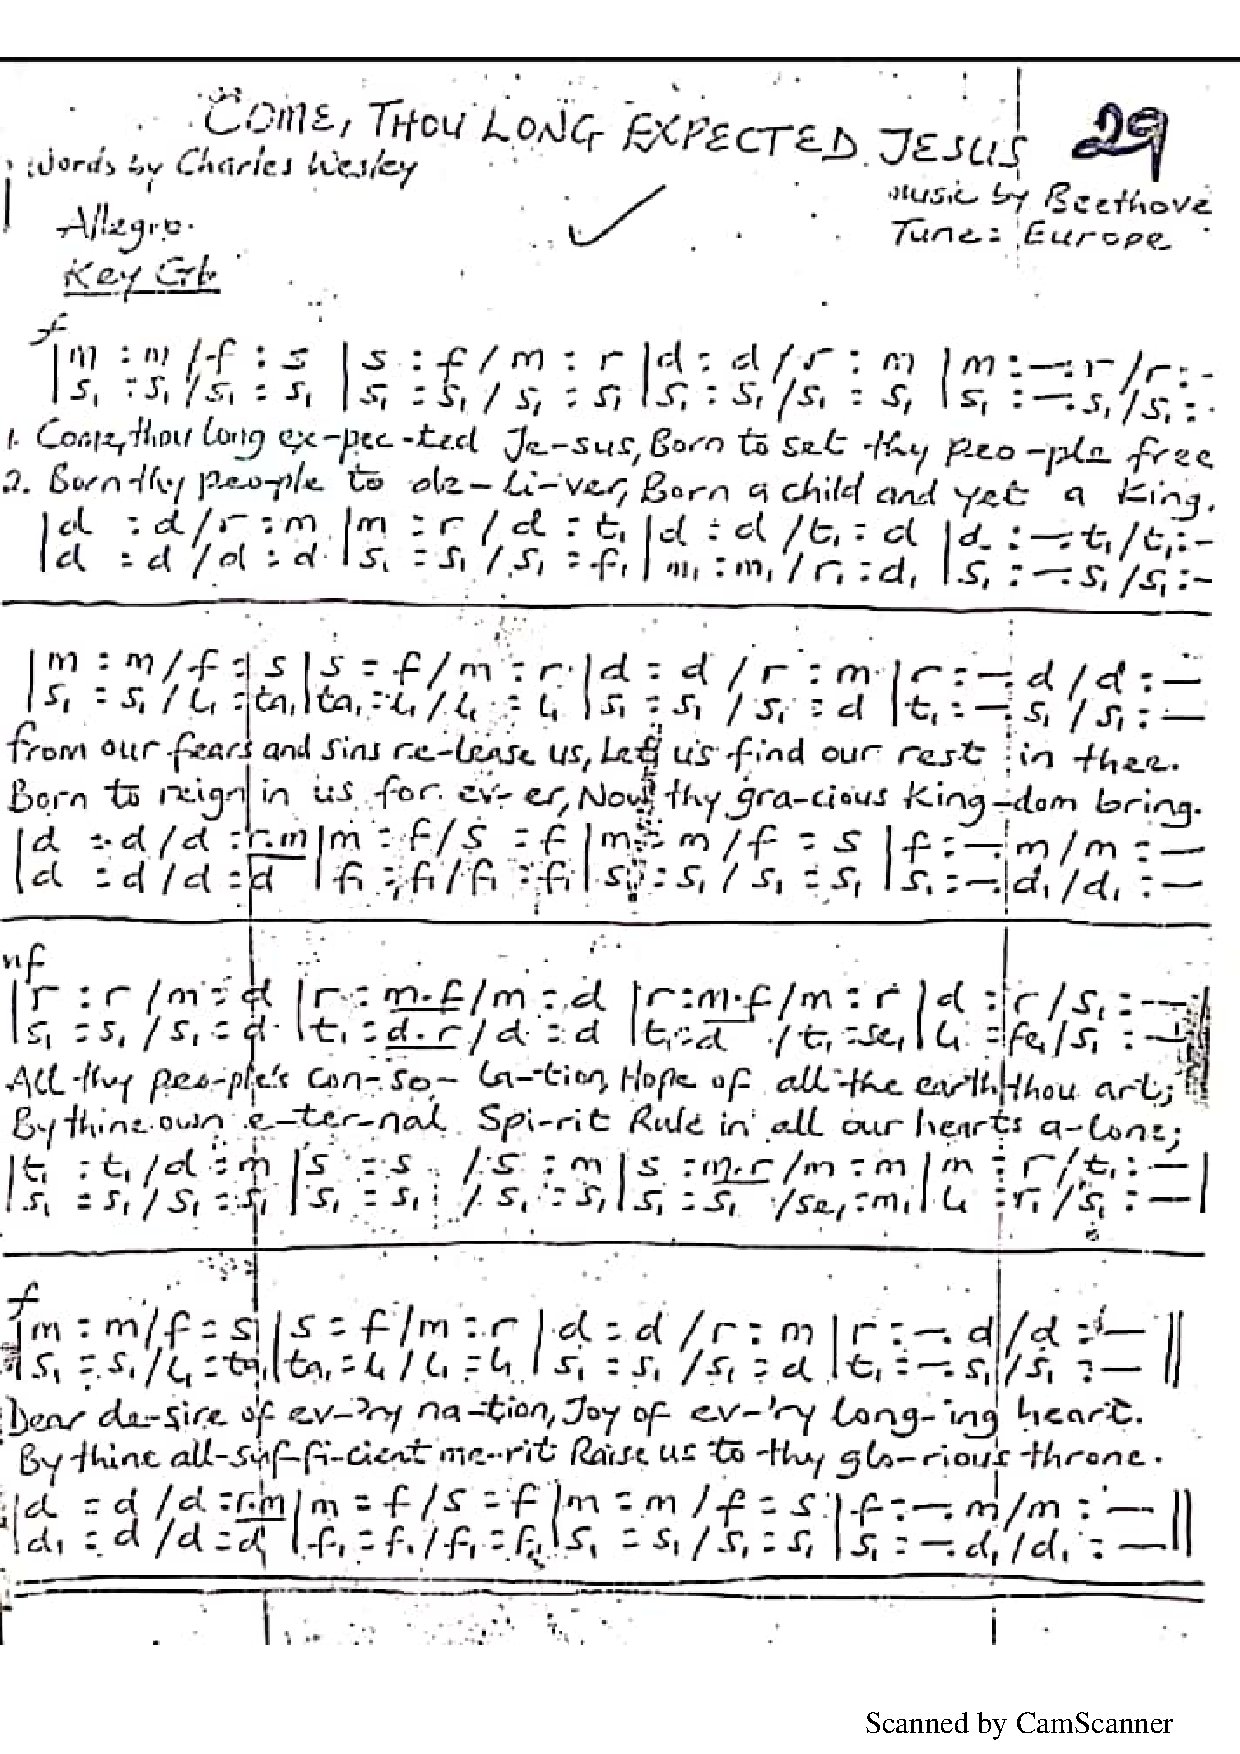 COME, THOU LONG EXPECTED JESUS 29
Words by Charles Wesley
Music by Beethove
Allegro.
Tune: Europe
Key Gb
f
|m : m / f : s |s : f / m : r |d : d / r : m |m : —. r / r : -
s₁ : s₁ / s₁ : s₁ |s₁ : s₁ / s₁ : s₁ |s₁ : s₁ / s₁ : s₁ |s₁ : —. s₁ / s₁ : -
1. Come, thou long ex-pec-ted Je-sus, Born to set thy peo-ple free
2. Born thy peo-ple to de-li-ver, Born a child and yet a King.
|d : d / r : m |m : r / d : t₁ |d : d / t₁ : d |d : —. t₁ / t₁ : -
|d : d / d : d |s₁ : s₁ / s₁ : f₁ |m₁ : m₁ / r₁ : d₁ |s₁ : —. s₁ / s₁ : -
|m : m / f : s |s : f / m : r |d : d / r : m |r : —. d / d : —
|s₁ : s₁ / l₁ : ta₁ |ta₁ : l₁ / l₁ : l₁ |s₁ : s₁ / s₁ : d |t₁ : —. s₁ / s₁ : —
from our fears and sins re-lease us, Let us find our rest in thee.
Born to reign in us for ev-er, Now thy gra-cious King-dom bring.
|d : d / d : r.m |m : f / s : f |m : m / f : s |f : —. m / m : —
|d : d / d : d |f₁ : f₁ / f₁ : f₁ |s₁ : s₁ / s₁ : s₁ |s₁ : —. d₁ / d₁ : —
mf
|r : r / m : d |r : m.f / m : d |r : m.f / m : r |d : r / s₁ : —
|s₁ : s₁ / s₁ : d |t₁ : d.r / d : d |t₁ : d / t₁ : se₁ |l₁ : fe₁ / s₁ : —
All thy peo-ple's con-so-la-tion, Hope of all the earth thou art;
By thine own e-ter-nal Spi-rit Rule in all our hearts a-lone;
|t₁ : t₁ / d : m |s : s / s : m |s : m.r / m : m |m : r / t₁ : — |
|s₁ : s₁ / s₁ : s₁ |s₁ : s₁ / s₁ : s₁ |s₁ : s₁ / se₁ : m₁ |l₁ : r₁ / s₁ : — |
f
|m : m / f : s |s : f / m : r |d : d / r : m |r : —. d / d : — ||
|s₁ : s₁ / l₁ : ta₁ |ta₁ : l₁ / l₁ : l₁ |s₁ : s₁ / s₁ : d |t₁ : —. s₁ / s₁ : — ||
Dear de-sire of ev-'ry na-tion, Joy of ev-'ry long-ing heart.
By thine all-suf-fi-cient me-rit Raise us to thy glo-rious throne.
|d : d / d : r.m |m : f / s : f |m : m / f : s |f : —. m / m : — ||
|d₁ : d / d : d |f₁ : f₁ / f₁ : f₁ |s₁ : s₁ / s₁ : s₁ |s₁ : —. d₁ / d₁ : — ||
Scanned by CamScanner